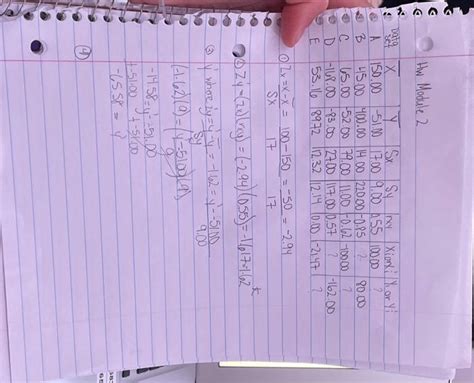 HW Module 2
Data Set X Y Sx Sy r Xi or xi Y or Yi
A 150.00 -51.00 17.00 9.00 0.55 100.00 ?
B 45.00 400.00 14.00 210.00 -0.85 ? 80.00
C 65.00 -52.00 74.00 11.00 -0.62 -100.00 ?
D -168.00 -83.00 27.00 117.00 0.57 ? -162.00
E 55.16 89.72 12.32 12.14 0.00 -2.47 ?
① Zx = x - x̄ = 100 - 150 = -50 = -2.94
Sx 17 17
② Zy = (Zx)(rxy) = (-2.94)(0.55) = -1.617 = -1.62
③ Y' where Zy = Y - Ȳ = -1.62 = Y' - -51.00
Sy 9.00
(-1.62)(9) = (Y' - -51.00)(9)
9
-14.58 = Y' - -51.00
+ -51.00 + -51.00
-65.58 = Y'
④